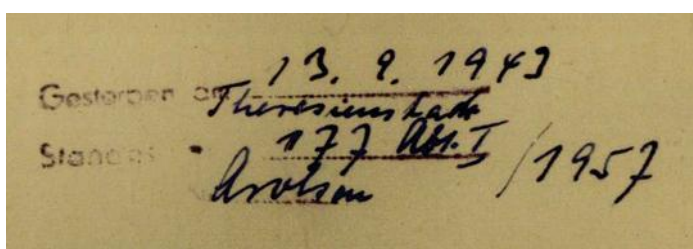 Gestorben am 13. 9. 1943
Theresienstadt
Standes 177 Abt. I /1957
Arolsen